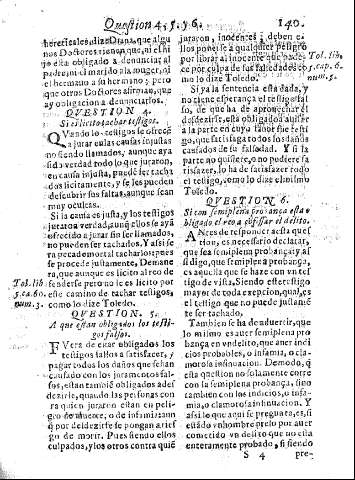 Question 4. 5. y 6. 140.
hereticales, dize Diana, que algu
nos Doctores tienen, que ni el hi
jo está obligado a denunciar al
padre, ni el marido a la muger, ni
el hermano a su hermano; pero
que otros Doctores afirman, que
ay obligacion a denunciarlos.
QVESTION 4.
Si es licito tachar testigos.
QVando los testigos se ofrecē
a jurar en las causas injustas
no siendo llamados, aunque aya
sido verdad todo lo que juraron,
en causa injusta, puedē ser tacha
dos licitamente, y se les pueden
descubrir sus faltas, aunque sean
muy ocultas.
Si la causa es justa, y los testigos
juraron verdad, aunq̄ ellos se aya
ofrecido a jurar sin ser llamados,
no pueden ser tachados. Y assi se
ra pecado mortal tacharlos quien
procede justamente. De mane
ra, que aunque es licito al reo de
fenderse, pero no le es licito por
este camino de tachar testigos,
como lo dize Toledo.
Tol. lib.
5. ca. 60.
num. 3.
QVESTION. 5.
A que estan obligados los testi
gos falsos.
FVera de estar obligados los
testigos falsos a satisfazer, y
pagar todos los daños que se han
causado con los juramentos fal-
sos, estan tambiē obligados a des
dezirse, quando las personas con
tra quien juraron estan en peli-
gro de muerte, o de infamia, aun
q̄ por desdezirse se pongan a ries
go de morir. Pues siendo ellos
culpados, y los otros contra quiē
juraron, inocentes, deben e-
llos ponerse a qualquier peligro
por librar al inocente que pade-
ce por culpa de sus falsedades, co
mo lo dize Toledo.
Tol. lib.
5. cap. 6.
num. 5.
Si ya la sentencia està dada, y
no tiene esperança el testigo fal
so, de que ha de aprovechar el
desdezirse, està obligado a satisfazer
a la parte en cuyo favor fue testi
go, que satisfaga todos los daños
causados de su falsedad. Y si la
parte no quisiere, o no pudiere sa
tisfazer, lo ha de satisfazer todo
el testigo, como lo dize el mismo
Toledo.
QVESTION 6.
Si con semiplena probança esta o-
bligado el reo a cōfessar el delito.
ANtes de responder a esta que
stion, es necesario declarar,
que sea semiplena probança; y as
si digo, que semiplena probança,
es aquella que se haze con vn tes
tigo de vista. Siendo este testigo
mayor de toda excepcion, qual es
el testigo que no puede justamē
te ser tachado.
Tambien se ha de advertir, que
lo mismo es auer semiplena pro
bança en vn delito, que auer indi
cios probables, o infamia, o cla-
morosa insinuacion. De modo, q̄
esta question no solamente corre
con la semiplena probança, sino
tambien con los indicios, o infa-
mia, o clamorosa insinuacion. Y
assi lo que aqui se pregunta, es, si
estādo vn hombre preso por auer
cometido vn delito que no està
enteramente probado, si siendo
S 4 pre-